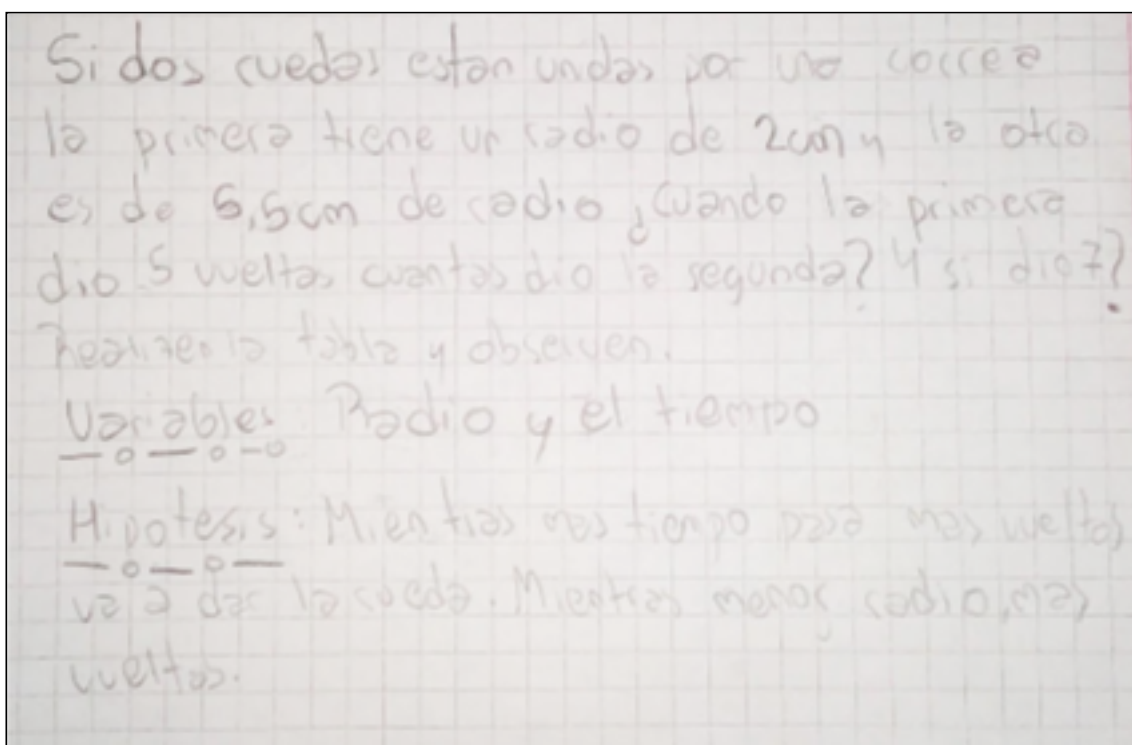 Si dos ruedas estan undas por una correa
la primera tiene un radio de 2cm y la otra
es de 5,5cm de radio ¿Cuando la primera
dio 5 vueltas cuantas dio la segunda? Y si dio 7?
Realizen la tabla y observen.
Variables Radio y el tiempo
Hipotesis: Mientras mas tiempo pasa mas vueltas
va a dar la rueda. Mientras menor radio, mas
vueltas.